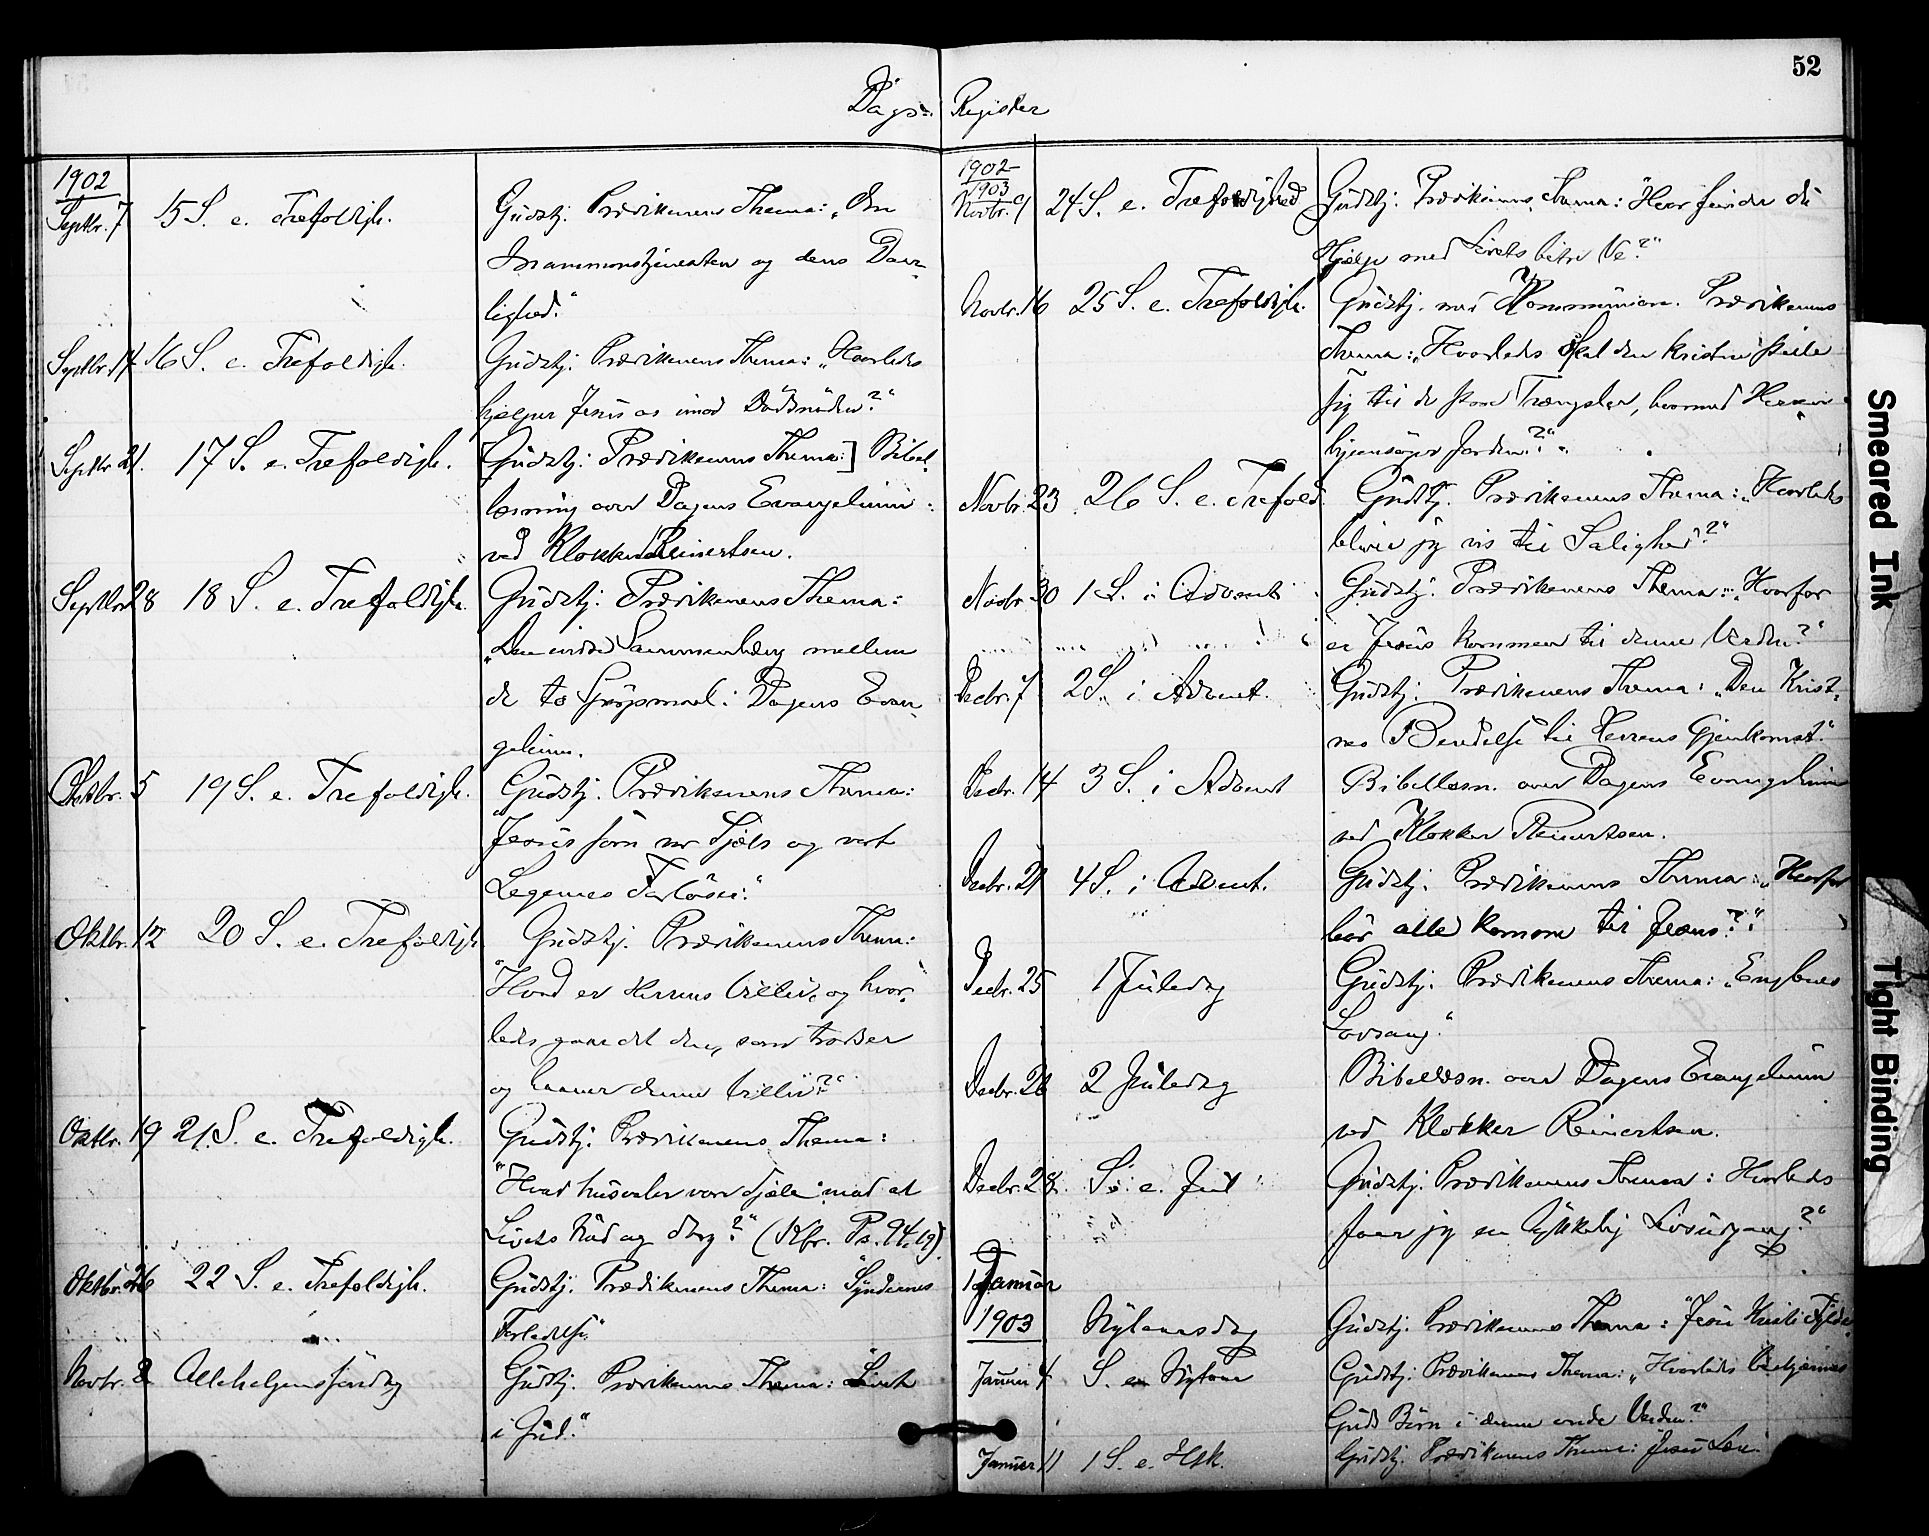 52
Dags- Register
1902
Septbr. 7 15 S. e. Trefoldigh. Gudstj. Prædikenens Thema: „Om
Mammonstjenesten og dens Daar-
lighed."
Septbr. 14 16 S. e. Trefoldigh. Gudstj. Prædikenens Thema: „Hvorledes
hjelper Jesus os imod Dödsnöden?"
Septbr. 21. 17 S. e. Trefoldigh. [Gudstj. Prædikenens Thema:] Bibel-
læsning over Dagens Evangelium
ved Klokker Reinertsen.
Septbr. 28 18 S. e. Trefoldigh. Gudstj. Prædikenens Thema:
„Den indre Sammenhæng mellem
de to Spörgsmaal i Dagens Evan-
gelium.
Oktbr. 5 19 S. e. Trefoldigh. Gudstj. Prædikenens Thema:
"Jesus som vor Sjæls og vort
Legemes Forlöser."
Oktbr. 12 20 S. e. Trefoldigh. Gudstj. Prædikenens Thema:
"Hvad er Herrens Villie, og hvor-
ledes gaar det dem, som trodser
og haaner denne Villie?"
Oktbr. 19 21. S. e. Trefoldigh. Gudstj. Prædikenens Thema:
"Hvad husvaler vor Sjæl mod al
Livets Nöd og Sorg?" (Kfr. Ps. 94,19).
Oktbr. 26 22 S. e. Trefoldigh. Gudstj. Prædikenens Thema: "Syndernes
Forladelse"
Novbr. 2 Allehelgenssöndag Gudstj. Prædikenens Thema: Livet
i Gud."
1902
1903
Novbr. 9 24 S. e. Trefoldighed Gudstj. Prædikenens Thema: "Hvor finder du
Hjelp mod Livets bitre Ve?"
Novbr. 16 25 S. e. Trefoldigh. Gudstj. med Kommunion. Prædikenens
Thema: „Hvorledes skal den kristne stille
sig til de store Trængsler, hvormed Herren
hjemsöger Jorden?"
Novbr. 23 26 S. e. Trefold. Gudstj. Prædikenens Thema: „Hvorledes
bliver jeg vis til Salighed?"
Novbr. 30 1 S. i Advent Gudstj. Prædikenens Thema: „Hvorfor
er Jesus kommen til denne Verden?"
Decbr. 7 2 S. i Advent. Gudstj. Prædikenens Thema: „Den Krist-
nes Beredelse til Herrens Gjenkomst."
Decbr. 14 3 S. i Advent Bibellæsn. over Dagens Evangelium
ved Klokker Reinertsen.
Decbr. 21 4 S. i Advent. Gudstj. Prædikenens Thema: „Hvorfor
bör alle komme til Jesus?"
Decbr. 25 1 Juledag Gudstj. Prædikenens Thema: „Englenes
Lovsang."
Decbr. 26 2 Juledag Bibellæsn. over Dagens Evangelium
ved Klokker Reinertsen.
Decbr. 28. S. e. Jul Gudstj. Prædikenens Thema: Hvorledes
faar jeg en lykkelig Livsudgang?"
1 Januar
1903 Nytaarsdag Gudstj. Prædikenens Thema: "Jesu Kristi Fylde
Januar 4 S. e. Nytaar Gudstj. Prædikenens Thema: „Hvorledes
Guds Börn i denne onde Verden?"
Januar 11 1 S. e. H3k. Gudstj. Prædikenens Thema: Jesu
Smeared Ink
Tight Binding